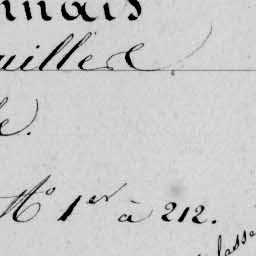 nnais
uillerd.
le.
N° 1er à 212.
lasse